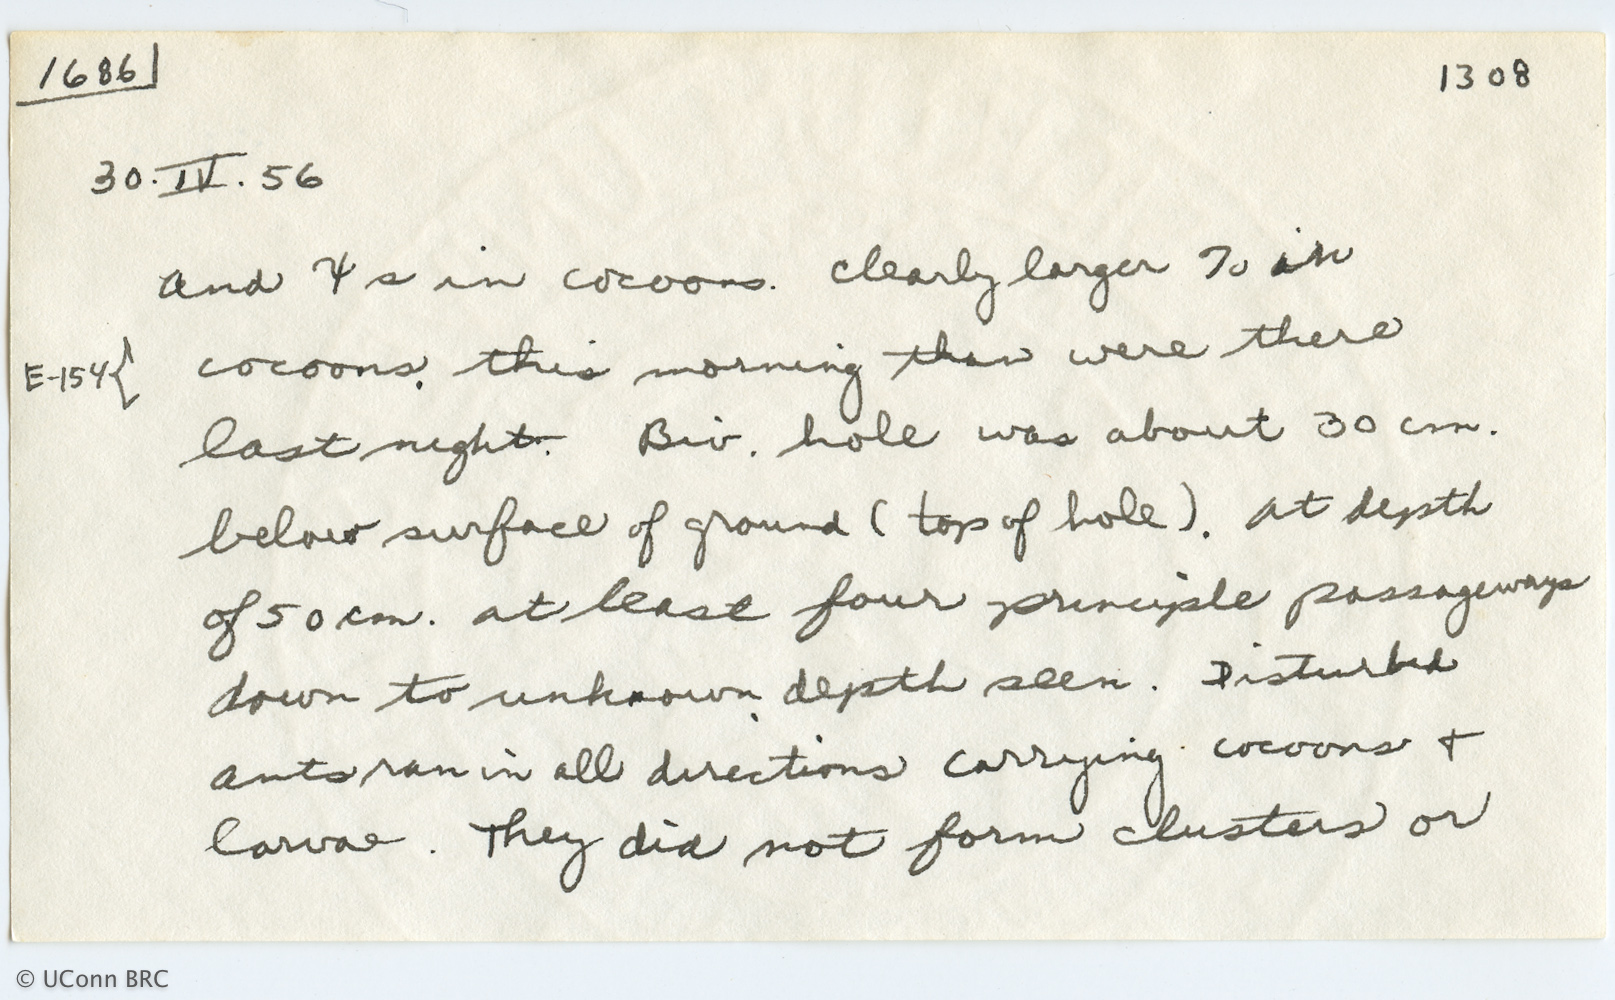 1686
1308
30.IV.56
and ♆s in cocoons. Clearly larger % in
E-154{ cocoons, this morning than were there
last night. Biv. hole was about 30 cm.
below surface of ground (top of hole). At depth
of 50 cm. at least four principle passageways
down to unknown depth seen. Disturbed
ants ran in all directions carrying cocoons +
larvae. They did not form clusters or
© UConn BRC